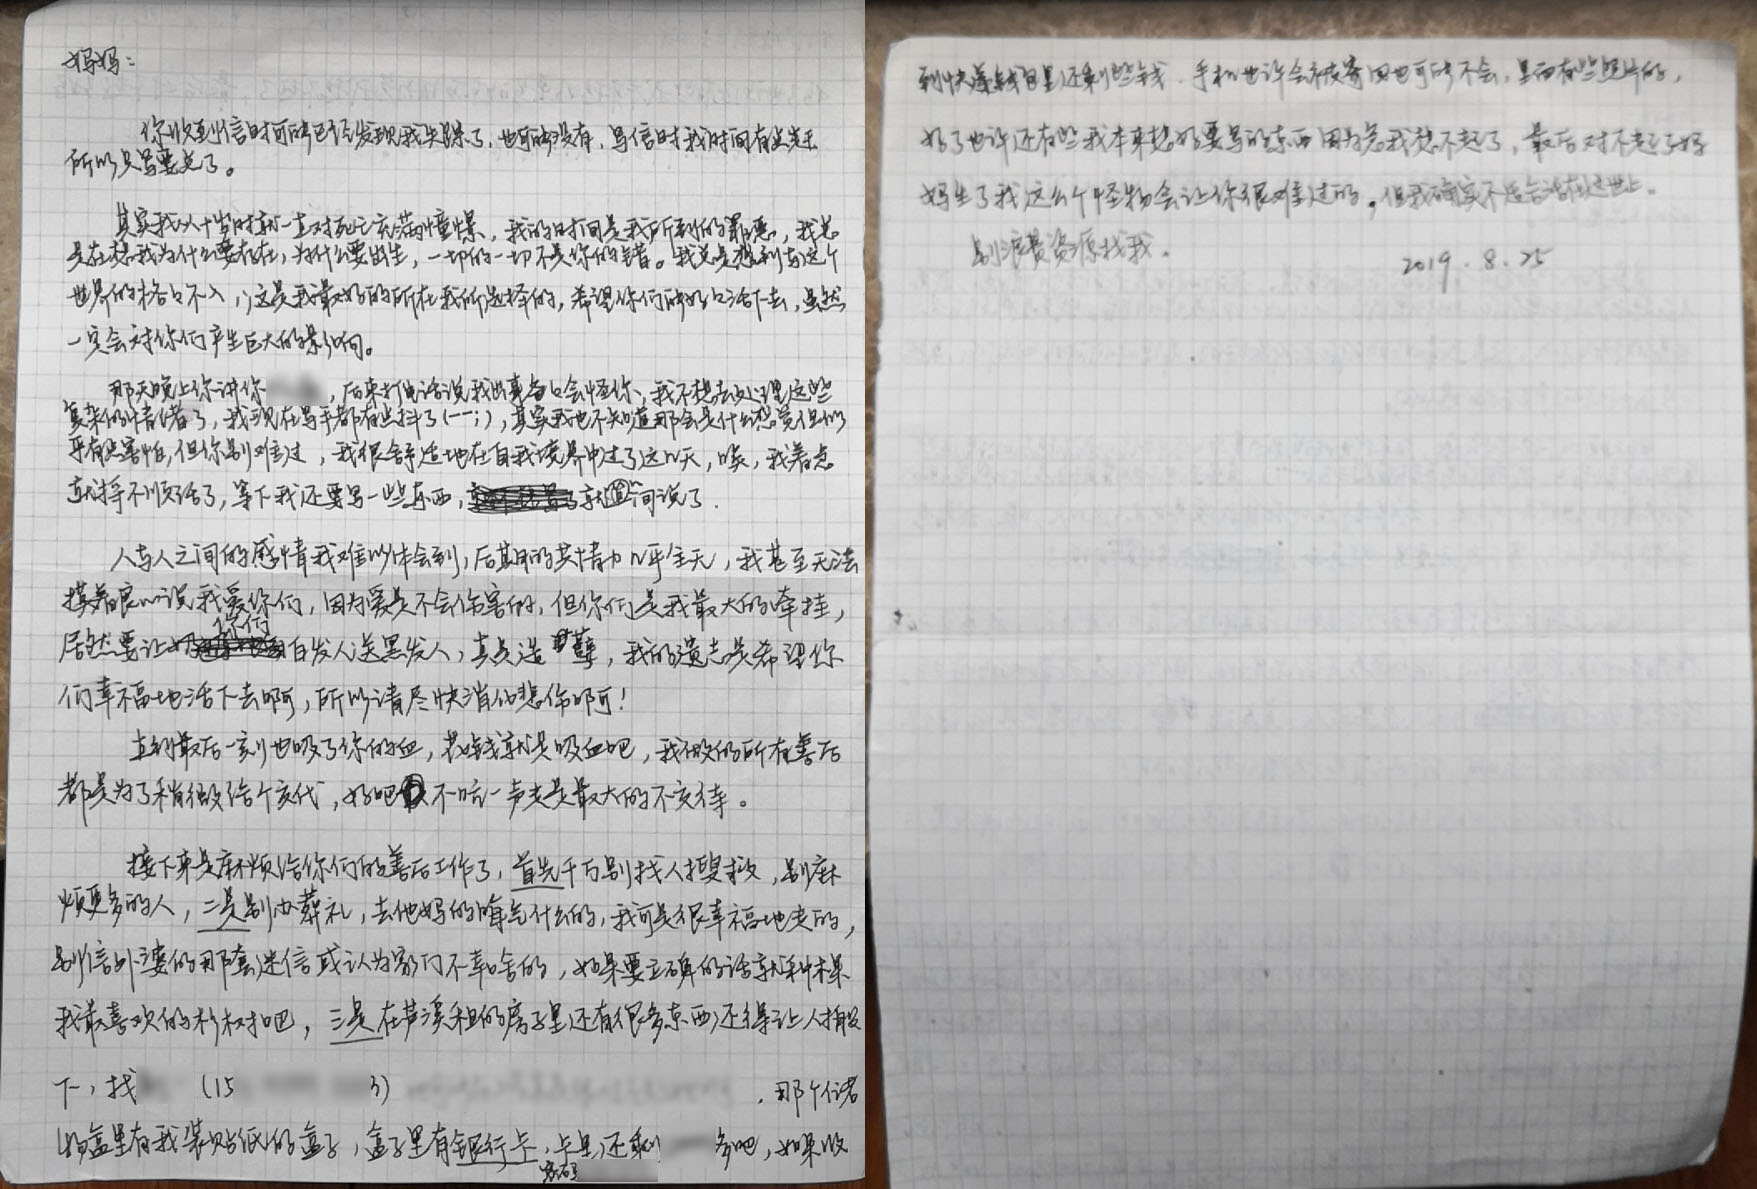 妈妈：
你收到信时可能已经发现我失踪了，也可能没有，写信时我时间有点赶
所以只写要点了。
其实我从十岁时就一直对死亡充满憧憬，我的时间是我所剩的罪恶，我总
是在想我为什么要存在，为什么要出生，一切的一切不是你的错。我总是想到与这个
世界的格格不入，这是我最好的所在我所选择的，希望你们能好好活下去，虽然
一定会对你们产生巨大的影响。
那天晚上你讲你，后来打电话说我出事者会怪你，我不想去处理这些
复杂的情绪了，我现在写手都有些抖了(一一；)，其实我也不知道那会是什么感觉但似
乎有点害怕，但你别难过，我很舒适地在自我境界中过了这几天，唉，我着急
就捋不顺话了，等下我还要写一些东西，就简说了．
人与人之间的感情我难以体会到，后期的共情力几乎全无，我甚至无法
摸着良心说我爱你们，因为爱是不会伤害的，但你们是我最大的牵挂，
居然要让你们白发人送黑发人，真是造孽，我的遗志是希望你
们幸福地活下去啊，所以请尽快消化悲伤啊！
直到最后一刻也吸了你的血，花钱就是吸血吧，我做的所有善后
都是为了稍微给个交代，好吧 不吭一声走是最大的不交待。
接下来是麻烦给你们的善后工作了，首先千万别找人搜救，别麻
烦更多的人，二是别办葬礼，去他妈的晦气什么的，我可是很幸福地走的，
别信外婆的那套迷信或认为家门不幸啥的，如果要立碑的话就种棵
我最喜欢的杉树吧，三是在芦溪租的房子里还有很多东西，还得让人搬
下，找 (15 3) ．那个住者
的盒里有我装贴纸的盒子，盒子里有银行卡，卡里还剩 多吧，如果收
密码
到快递钱包里还剩些钱．手机也许会被寄回也可能不会，里面有些照片的，
好了也许还有些我本来想好要写的东西因为急我想不起了，最后对不起了妈
妈生了我这么个怪物会让你很难过的，但我确实不适合活在这世上．
别浪费资源找我．
2019．8．25